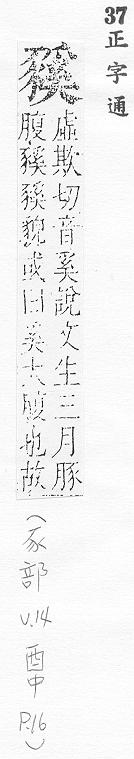 37正字通
豯
虛欺切音奚說文生三月豚
腹豯豯貌或曰奚大腹也故
(豕部 V.14 酉中 P.16)